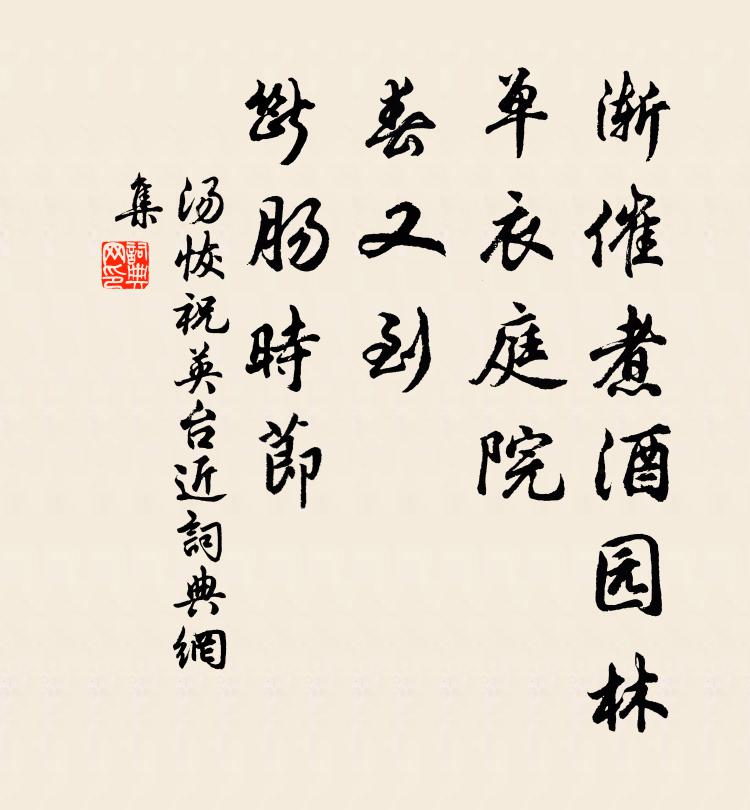 渐催煮酒园林
单衣庭院
春又到
断肠時節
汤恢祝英台近詞典網
集
詞典
网印